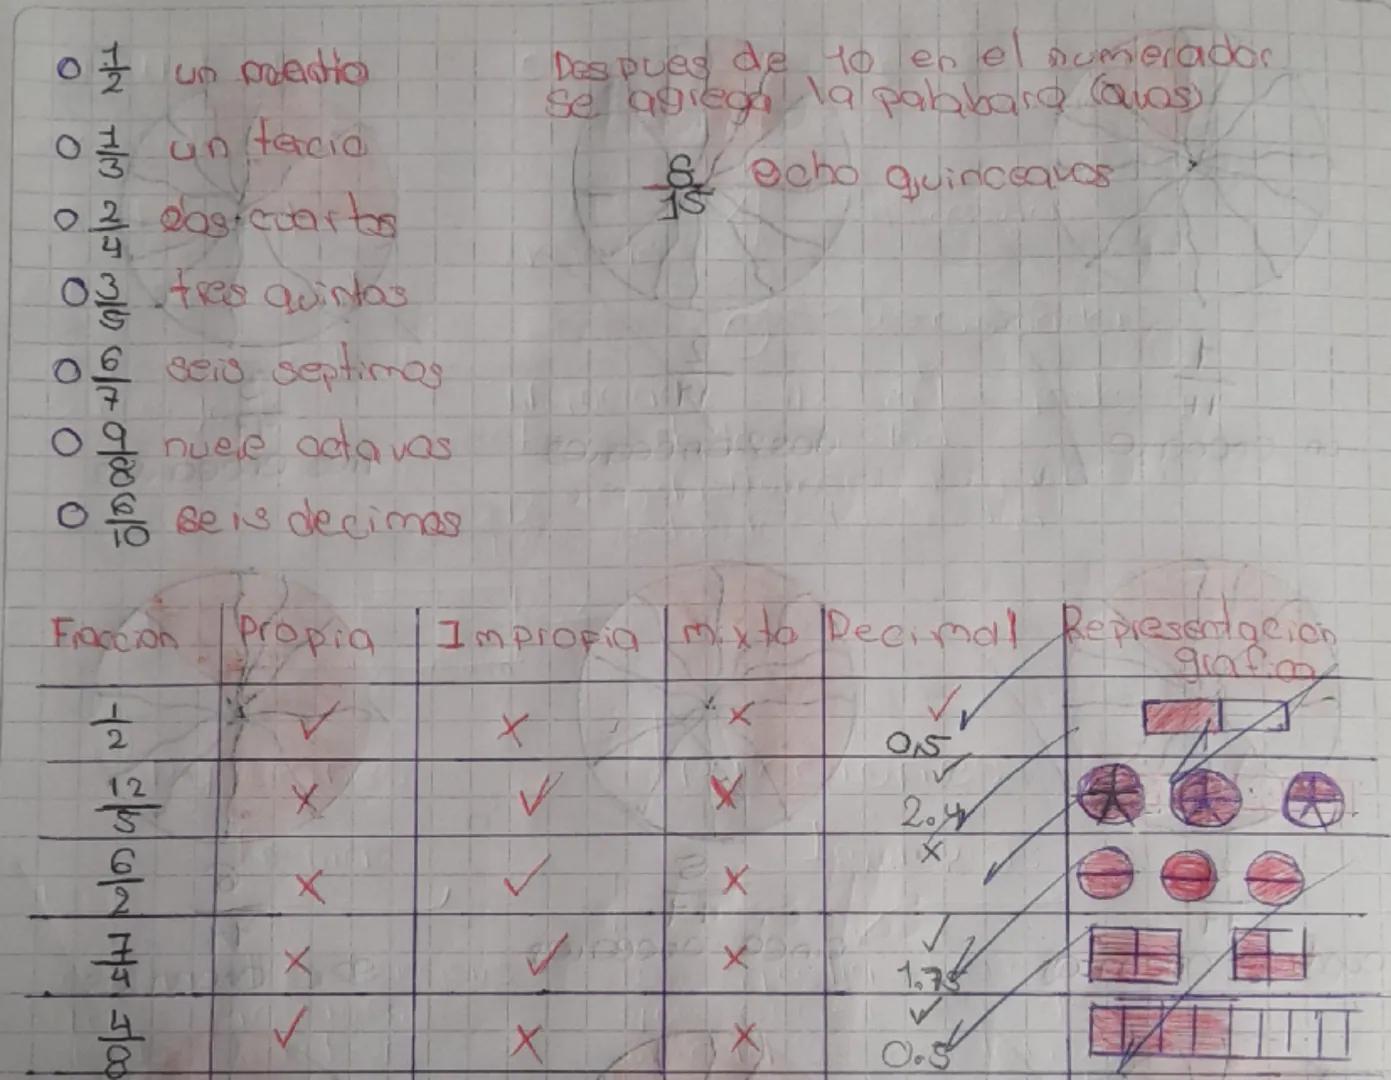 1/2 un medio
1/3 un tercio
2/4 dos cuartos
3/5 tres quintos
6/7 seis septimos
9/8 nueve octavos
6/10 seis decimos
Despues de 10 en el numerador
se agrega la palabbara (avos)
8/15 ocho quinceavos
Fraccion Propia Impropia mixto Decimal Representacion
grafica
1/2 ✓ x x ✓ 0.5
12/5 x ✓ x ✓ 2.4
6/2 x ✓ x x
7/4 x ✓ x ✓ 1.75
4/8 ✓ x x ✓ 0.5